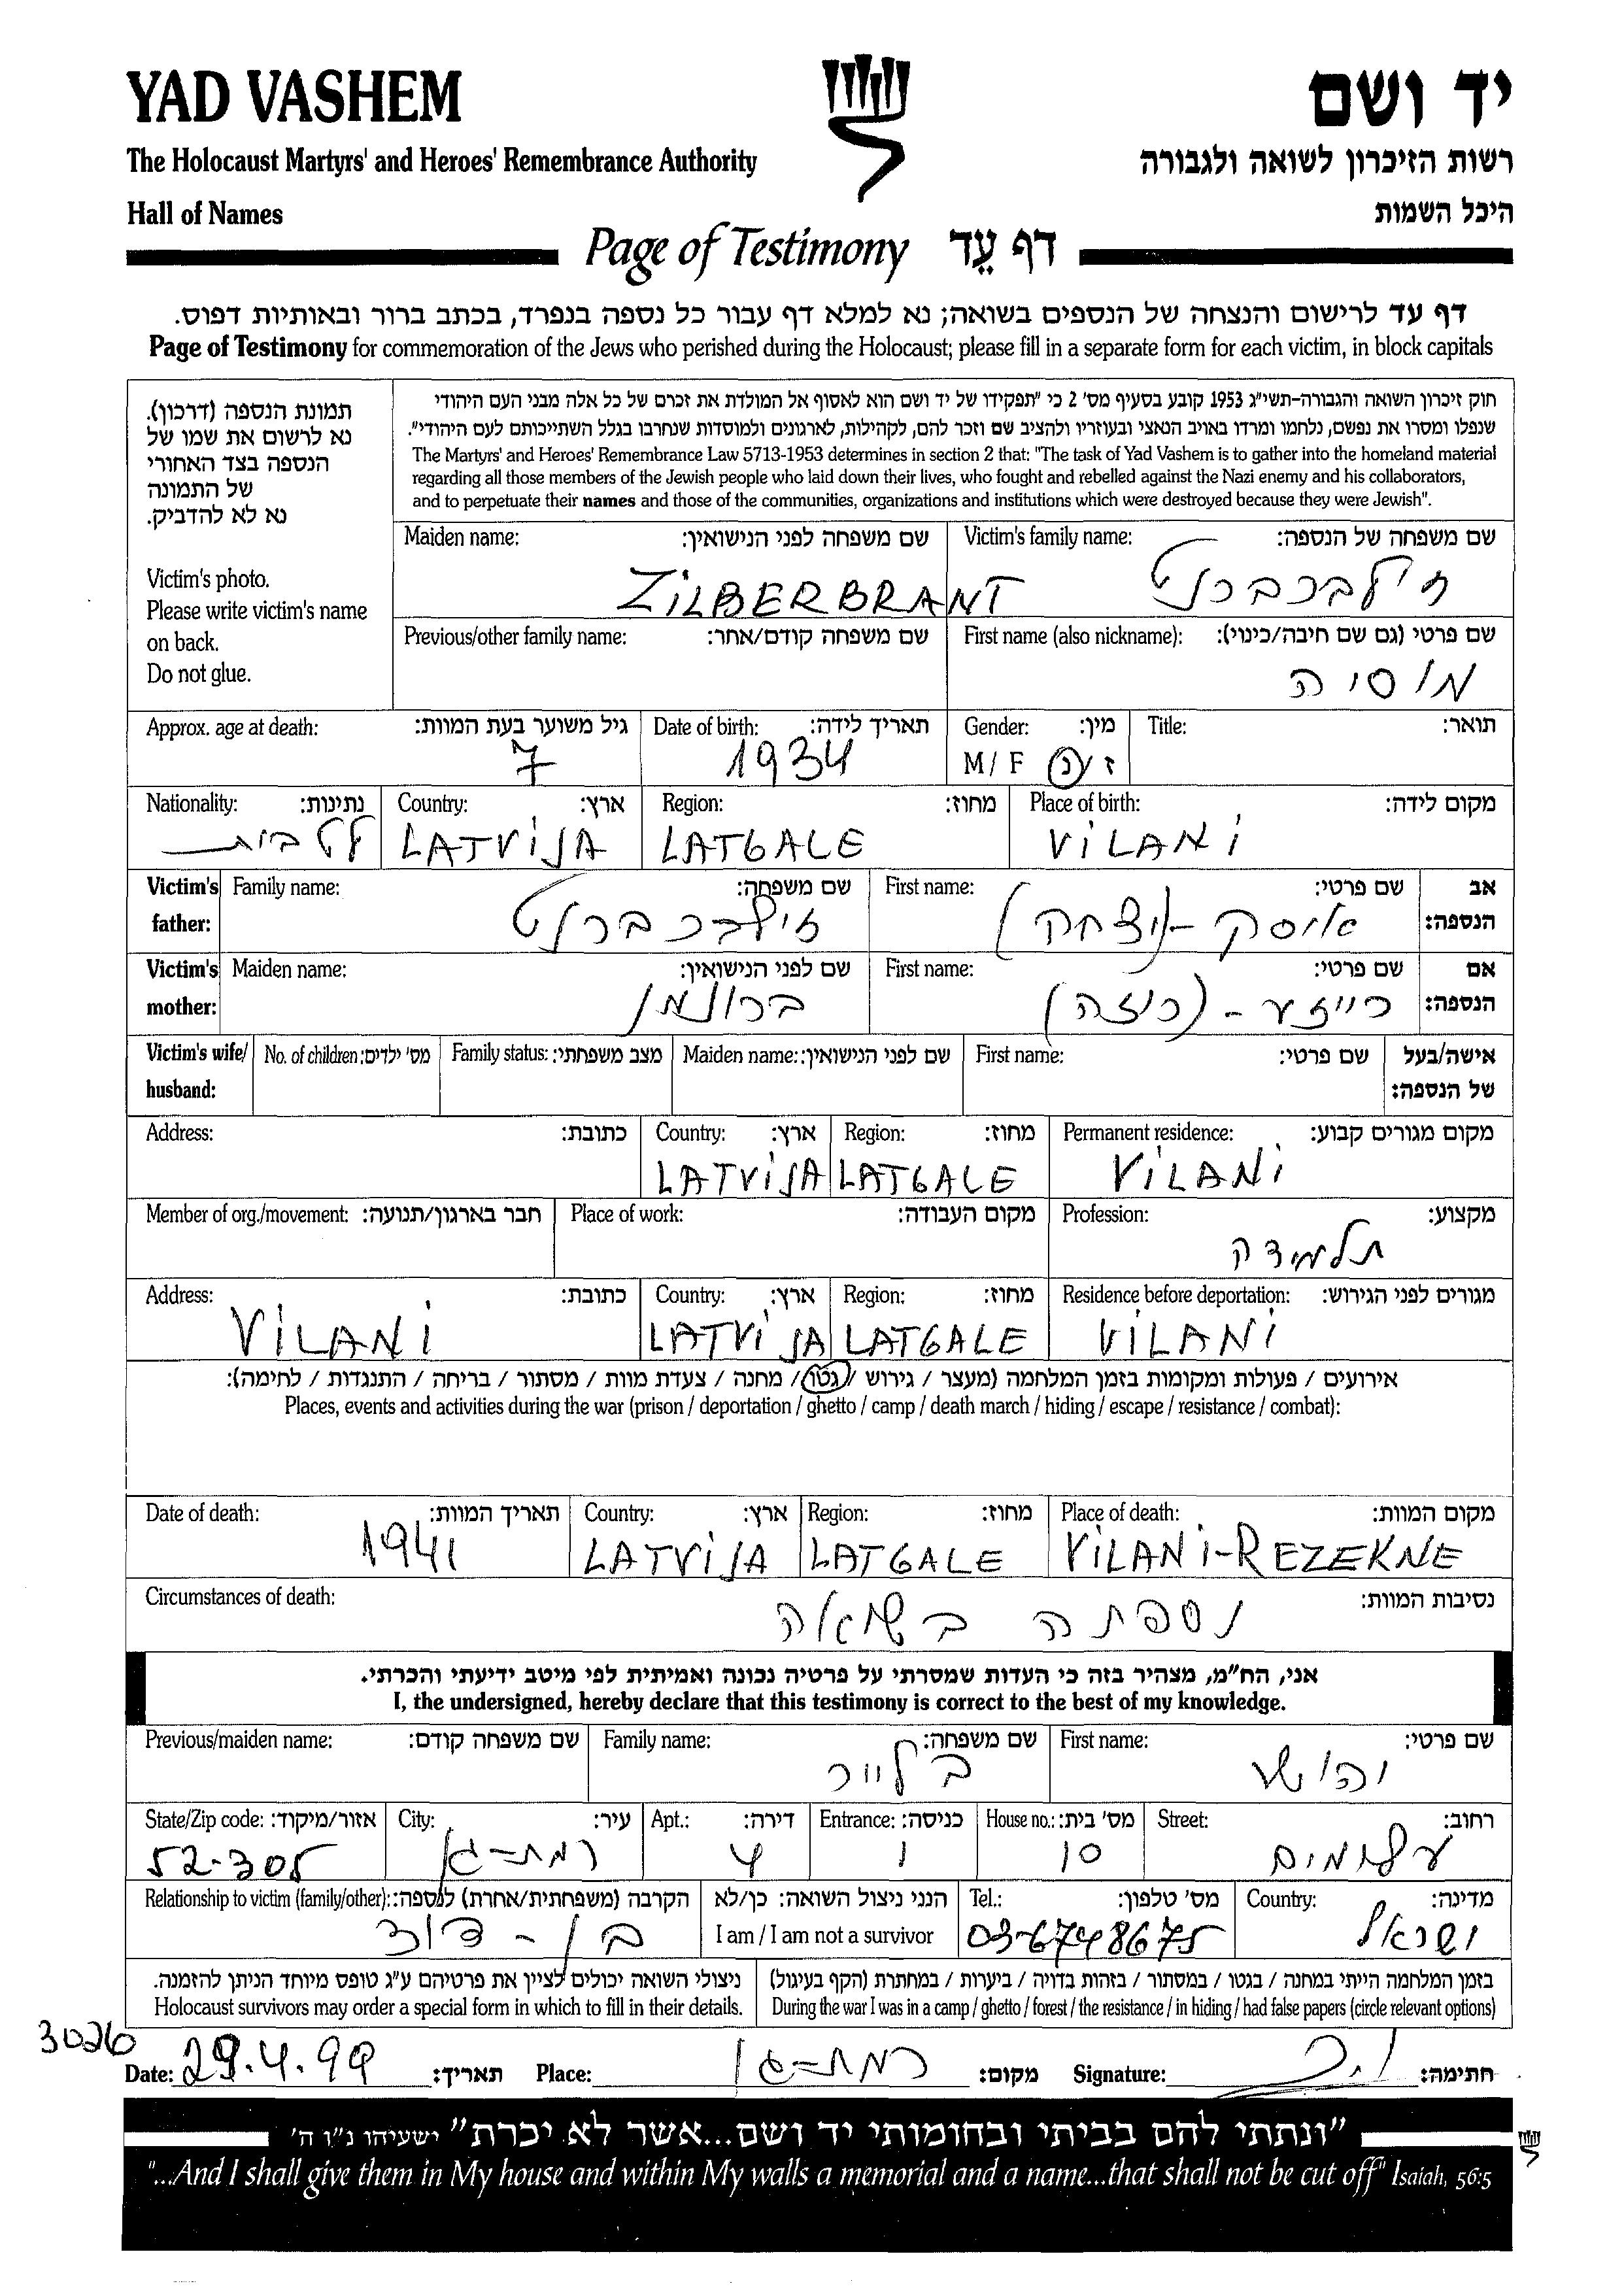 YAD VASHEM
יד ושם
The Holocaust Martyrs' and Heroes' Remembrance Authority
רשות הזיכרון לשואה ולגבורה
Hall of Names
היכל השמות
Page of Testimony דף עֵד
דף עד לרישום והנצחה של הנספים בשואה; נא למלא דף עבור כל נספה בנפרד, בכתב ברור ובאותיות דפוס.
Page of Testimony for commemoration of the Jews who perished during the Holocaust; please fill in a separate form for each victim, in block capitals
תמונת הנספה (דרכון).
נא לרשום את שמו של
הנספה בצד האחורי
של התמונה
נא לא להדביק.
Victim's photo.
Please write victim's name
on back.
Do not glue.
חוק זיכרון השואה והגבורה-תשי"ג 1953 קובע בסעיף מס' 2 כי "תפקידו של יד ושם הוא לאסוף אל המולדת את זכרם של כל אלה מבני העם היהודי
שנפלו ומסרו את נפשם, נלחמו ומרדו באויב הנאצי ובעוזריו ולהציב שם וזכר להם, לקהילות, לארגונים ולמוסדות שנחרבו בגלל השתייכותם לעם היהודי".
The Martyrs' and Heroes' Remembrance Law 5713-1953 determines in section 2 that: "The task of Yad Vashem is to gather into the homeland material
regarding all those members of the Jewish people who laid down their lives, who fought and rebelled against the Nazi enemy and his collaborators,
and to perpetuate their names and those of the communities, organizations and institutions which were destroyed because they were Jewish".
Maiden name: שם משפחה לפני הנישואין: Victim's family name: שם משפחה של הנספה:
ZILBERBRANT זילברברנט
Previous/other family name: שם משפחה קודם/אחר: First name (also nickname): שם פרטי (גם שם חיבה/כינוי):
מוסיה
Approx. age at death: גיל משוער בעת המוות: Date of birth: תאריך לידה: Gender: מין: Title: תואר:
7 1934 M / F ז / נ
Nationality: נתינות: Country: ארץ: Region: מחוז: Place of birth: מקום לידה:
לטבית LATVIJA LATGALE VILANI
Victim's father: Family name: שם משפחה: First name: שם פרטי: אב הנספה:
זילברברנט איסק-(יצחק)
Victim's mother: Maiden name: שם לפני הנישואין: First name: שם פרטי: אם הנספה:
ברונמן רייזע-(רוזה)
Victim's wife/ husband: No. of children: מס' ילדים: Family status: מצב משפחתי: Maiden name: שם לפני הנישואין: First name: שם פרטי: אישה/בעל של הנספה:
Address: כתובת: Country: ארץ: Region: מחוז: Permanent residence: מקום מגורים קבוע:
LATVIJA LATGALE VILANI
Member of org./movement: חבר בארגון/תנועה: Place of work: מקום העבודה: Profession: מקצוע:
תלמידה
Address: כתובת: Country: ארץ: Region: מחוז: Residence before deportation: מגורים לפני הגירוש:
VILANI LATVIJA LATGALE VILANI
אירועים / פעולות ומקומות בזמן המלחמה (מעצר / גירוש / גטו / מחנה / צעדת מוות / מסתור / בריחה / התנגדות / לחימה):
Places, events and activities during the war (prison / deportation / ghetto / camp / death march / hiding / escape / resistance / combat):
Date of death: תאריך המוות: Country: ארץ: Region: מחוז: Place of death: מקום המוות:
1941 LATVIJA LATGALE VILANI-REZEKNE
Circumstances of death: נסיבות המוות:
נספתה בשואה
אני, הח"מ, מצהיר בזה כי העדות שמסרתי על פרטיה נכונה ואמיתית לפי מיטב ידיעתי והכרתי.
I, the undersigned, hereby declare that this testimony is correct to the best of my knowledge.
Previous/maiden name: שם משפחה קודם: Family name: שם משפחה: First name: שם פרטי:
בלייר יהושע
State/Zip code: אזור/מיקוד: City: עיר: Apt.: דירה: Entrance: כניסה: House no.: מס' בית: Street: רחוב:
52-305 רמת-גן 4 1 10 עלומים
Relationship to victim (family/other): הקרבה (משפחתית/אחרת) לנספה: הנני ניצול השואה: כן/לא Tel.: מס' טלפון: Country: מדינה:
בן-דוד I am / I am not a survivor 03-6748675 ישראל
ניצולי השואה יכולים לציין את פרטיהם ע"ג טופס מיוחד הניתן להזמנה. בזמן המלחמה הייתי במחנה / בגטו / במסתור / בזהות בדויה / ביערות / במחתרת (הקף בעיגול)
Holocaust survivors may order a special form in which to fill in their details. During the war I was in a camp / ghetto / forest / the resistance / in hiding / had false papers (circle relevant options)
3026
Date: 29.4.99 תאריך: Place: רמת-גן מקום: Signature: חתימה:
"ונתתי להם בביתי ובחומותי יד ושם...אשר לא יכרת" ישעיהו נ"ו ה'
"...And I shall give them in My house and within My walls a memorial and a name...that shall not be cut off" Isaiah, 56:5